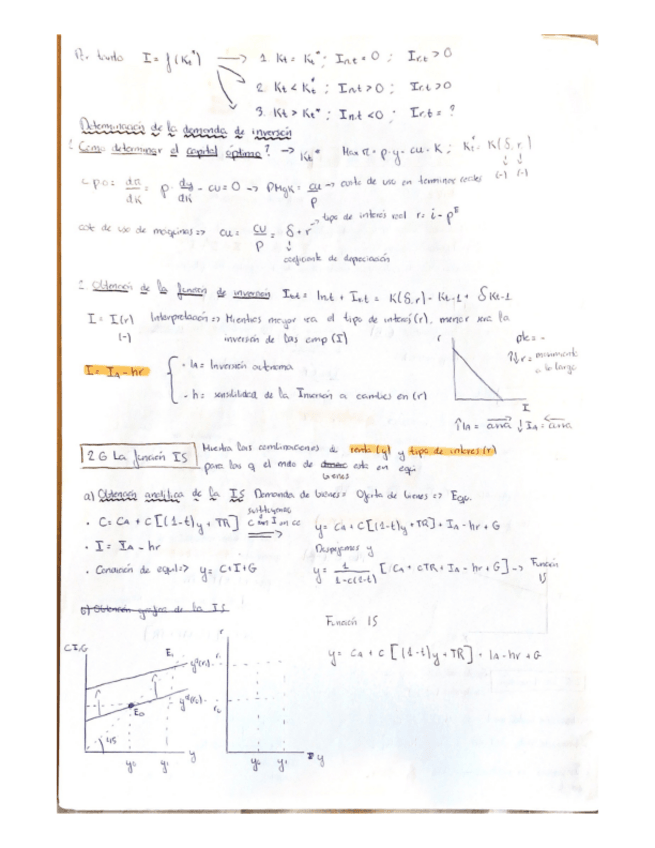 Por tanto I = f(Kt*) → 1. Kt = Kt* ; In,t = 0 ; Ir,t > 0
2. Kt < Kt* ; In,t > 0 ; Ir,t > 0
3. Kt > Kt* ; In,t < 0 ; Ir,t = ?
Determinación de la demanda de inversión
Como determinar el capital óptimo? → Kt* Max π = p·y - cu·K ; Kt* = K(δ, r)
(-) (-)
CPO = dπ/dK = p · dy/dK - cu = 0 → PMgK = cu/p → coste de uso en términos reales
cote de uso de maquinas => cu = cu/p = δ + r → tipo de interes real r = i - p^E
coeficiente de depreciación
2. Obtención de la función de inversión It,t = In,t + Ir,t = K(δ, r) - Kt-1 + δKt-1
I = I(r) Interpretación => Mientras mayor sea el tipo de interes (r), menor sera la
(-) inversión de las emp (I)
r pte = -
I = IA - hr
- IA = Inversión autonoma
↑↓ r = movimiento a lo largo
- h = sensibilidad de la Inversión a cambios en (r)
I
↑IA = ↓IA =
2.6 La función IS Muestra las combinaciones de renta (y) y tipo de interes (r)
para los q el mdo de bienes esta en equi
a) Obtención analítica de la IS Demanda de bienes = Oferta de bienes => Equi.
sustituyendo
· C = CA + C[(1-t)y + TR] C en I en ce y = CA + C[(1-t)y + TR] + IA - hr + G
· I = IA - hr Despejamos y
· Condición de equil => y = C + I + G y = 1/1-c(1-t) [CA + cTR + IA - hr + G] → Función IS
b) Obtención grafica de la IS
Función IS
y = CA + C[(1-t)y + TR] + IA - hr + G
C,I,G E1 r
E0
45
y0 y1 y
y0 y1 y